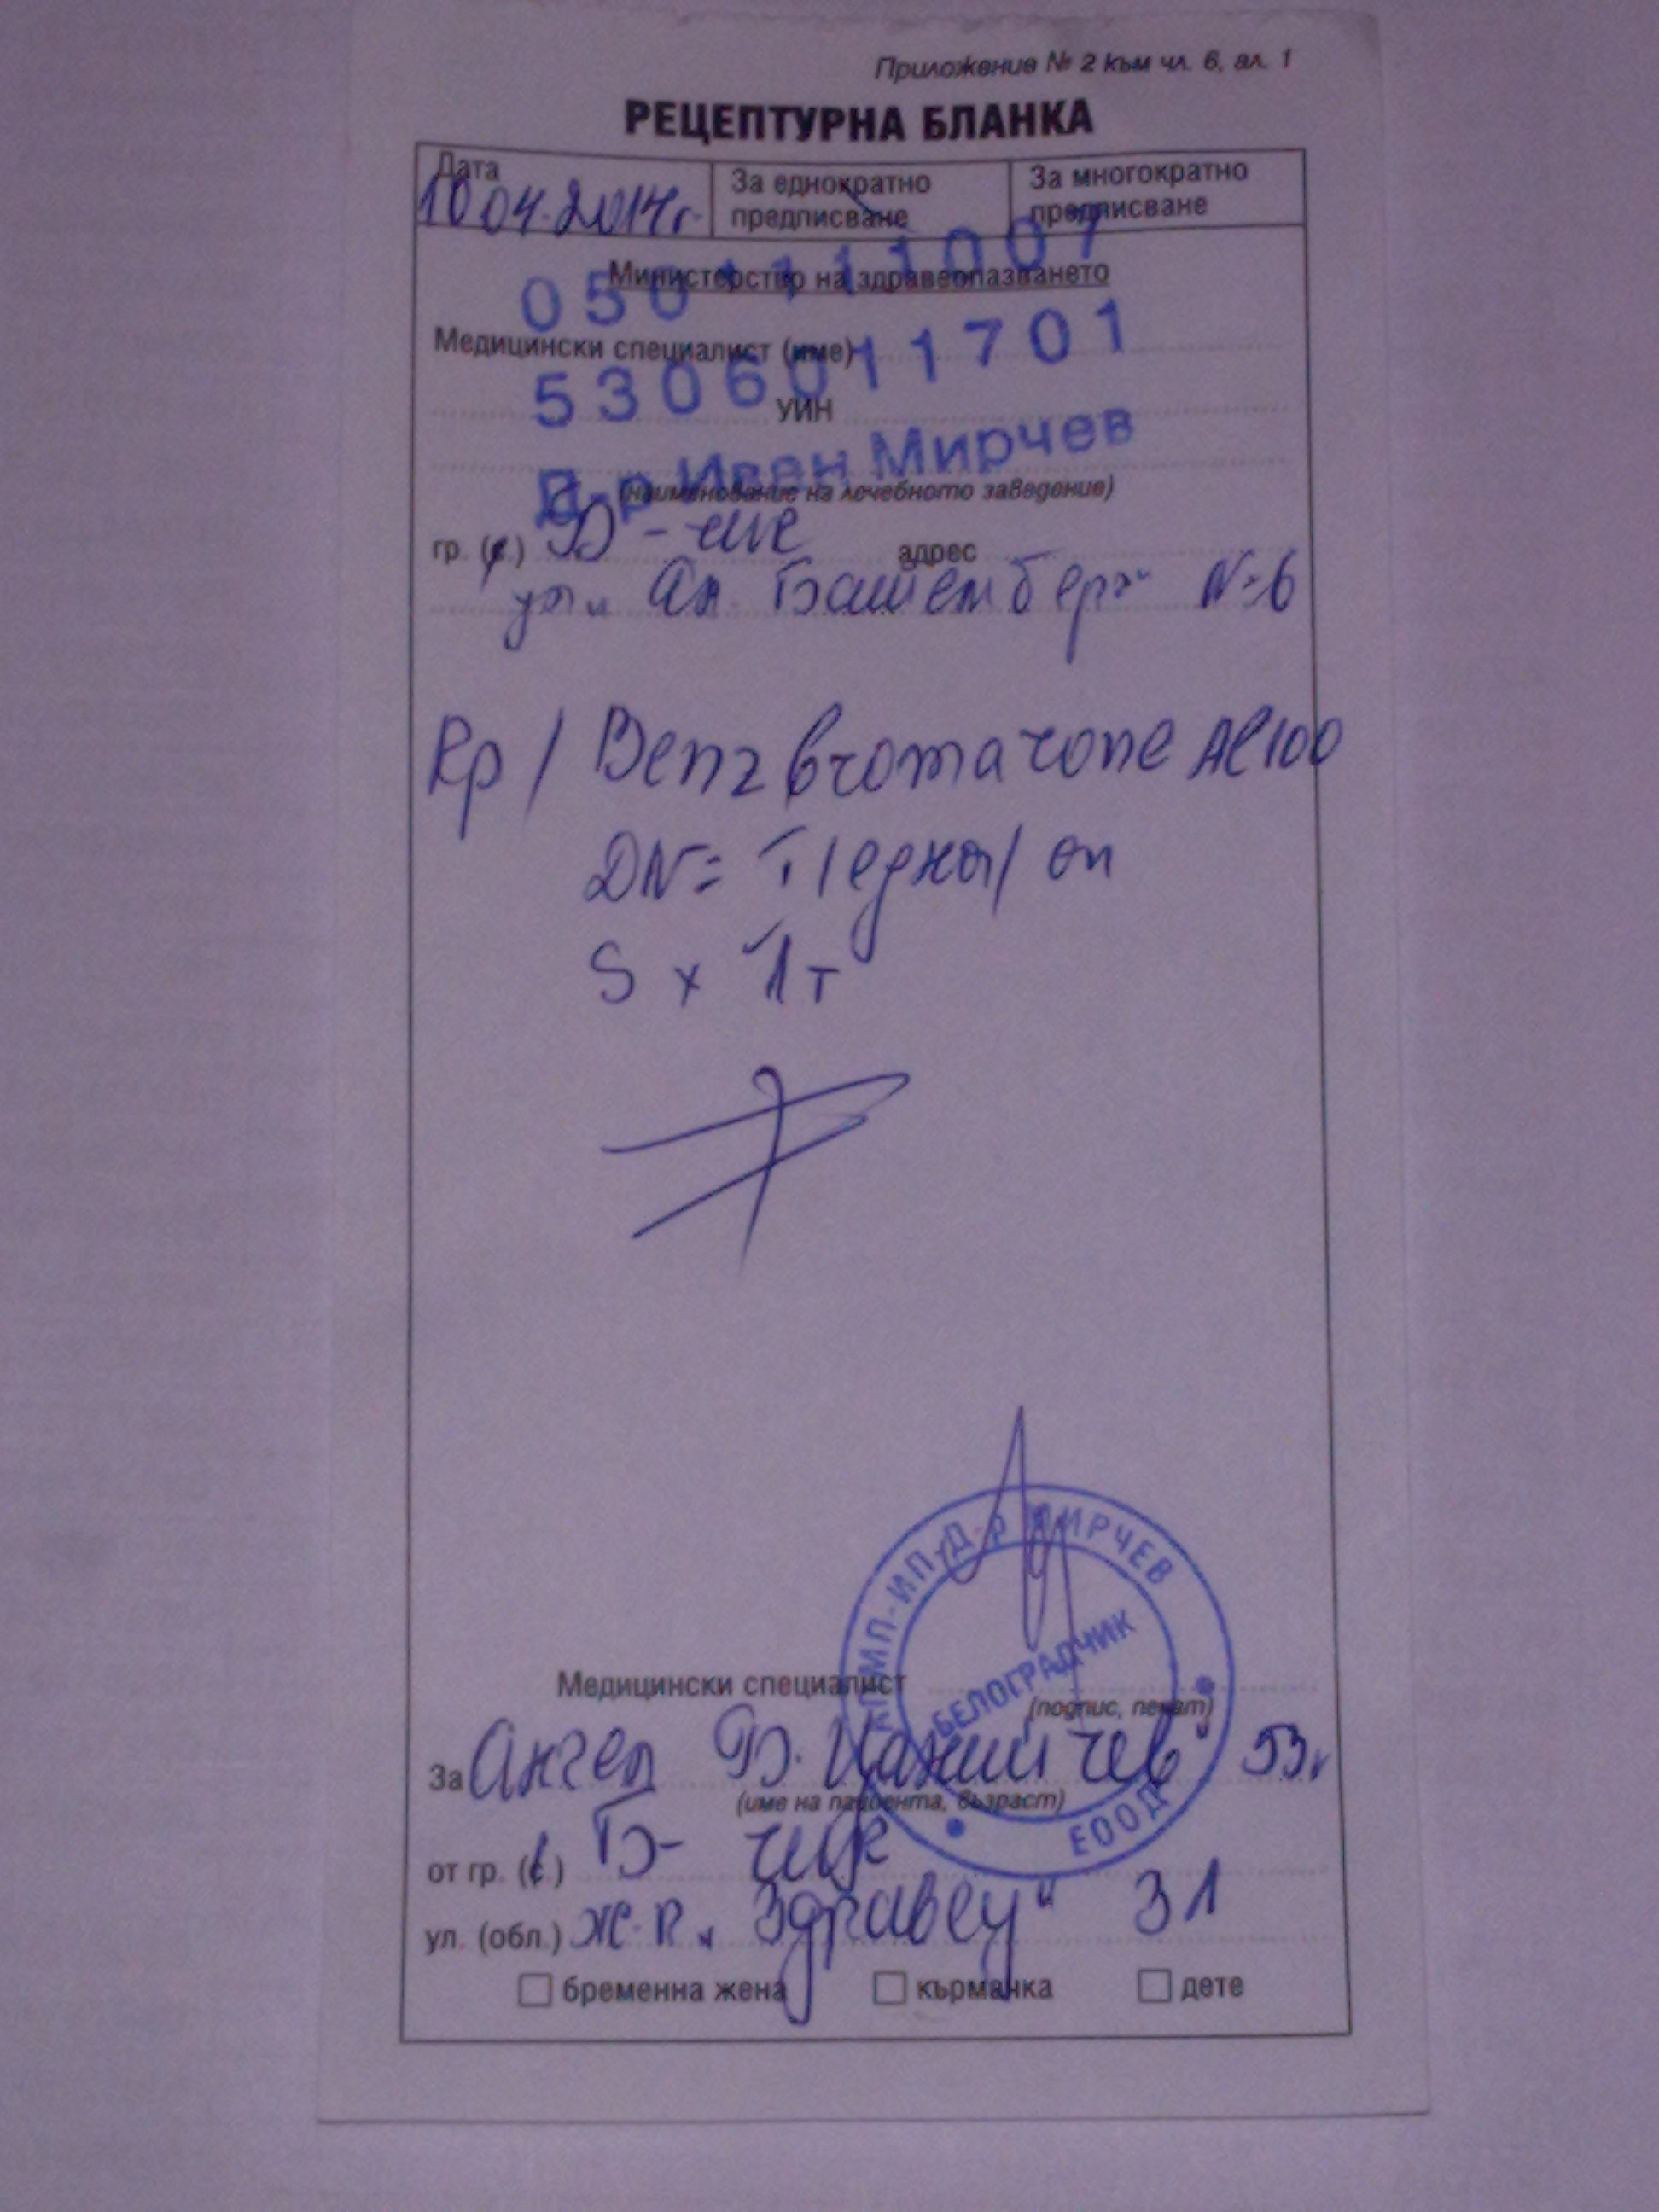 Приложение № 2 към чл. 6, ал. 1
РЕЦЕПТУРНА БЛАНКА
Дата
10.04.2014г.
За еднократно предписване
За многократно предписване
050 1111007
Министерство на здравеопазването
Медицински специалист (име)
5306011701
УИН
Д-р Ивен Мирчев
(наименование на лечебното заведение)
гр. (с.) Б-чик адрес
ул. " Ал. Батемберг" №6
Rp / Benzbromarone AL100
DN= T /една/ оп
S x 1т
АПМП-ИП-Д-р МИРЧЕВ
БЕЛОГРАДЧИК
ЕООД
Медицински специалист
(подпис, печат)
За Ангел Б. 53г
(име на пациента, възраст)
от гр. (с.) Б-чик
ул. (обл.) ж.к. „Здравец" 31
бременна жена кърмачка дете